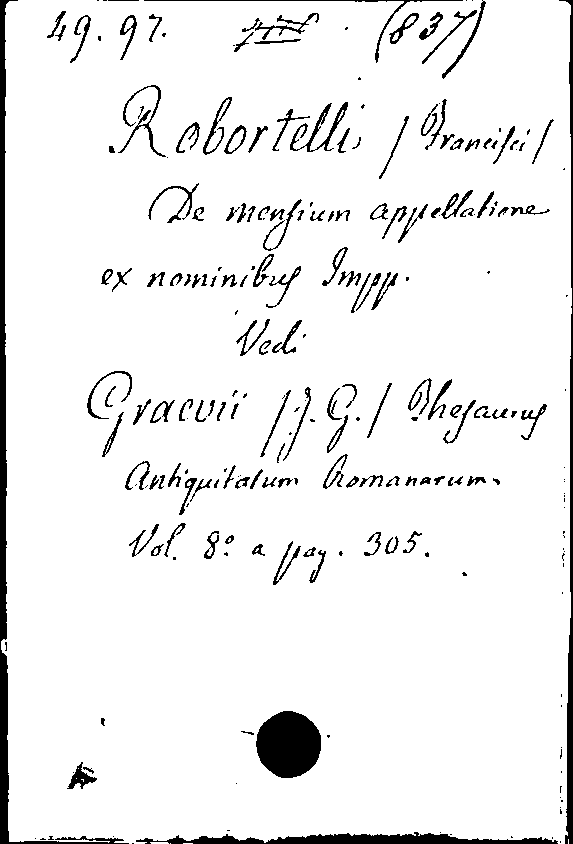 49. 97. (837)
Robortelli /Francisci/
De mensium appellatione
ex nominibus Impp.
Vedi
Graevii /J. G./ Thesaurus
Antiquitatum Romanarum.
Vol. 8º a pag. 305.